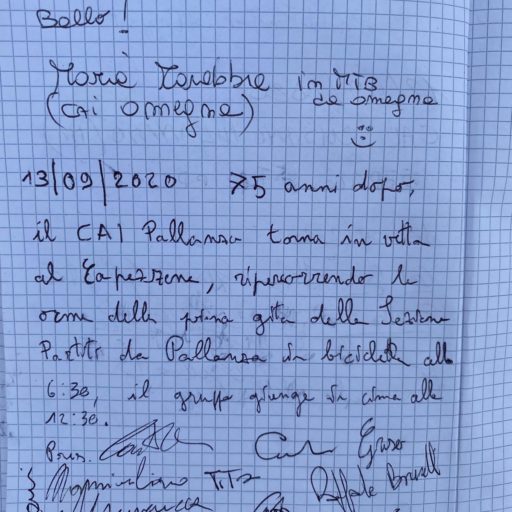 Bello!
in MTB
(CAI omegna) da omegna
13/09/2020 75 anni dopo,
il CAI Pallanza torna in vetta
al Capezzone, ripercorrendo le
orme della prima gita della Sezione
Partiti da Pallanza in bicicletta alle
6:30, il gruppo giunge in cima alle
12:30.
Pres.
Massimiliano
Raffaele